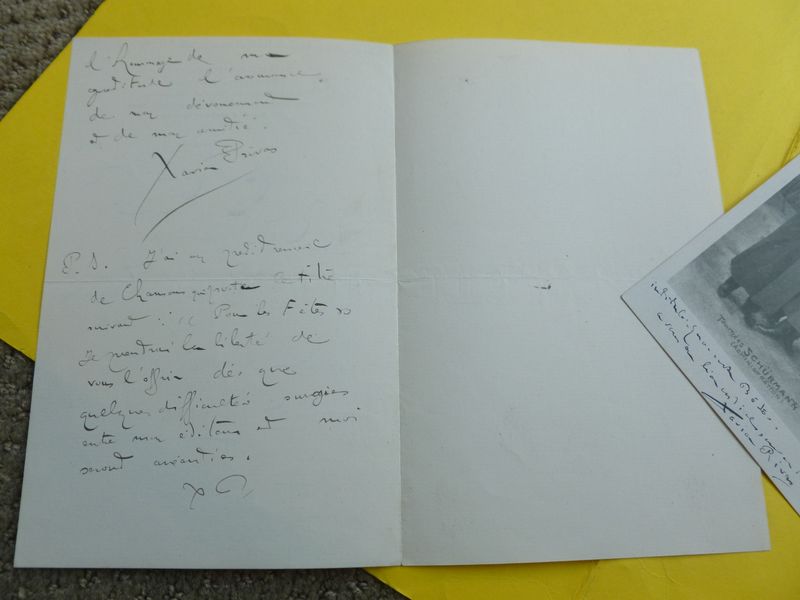 l'Hommage de ma
gratitude l'assurance
de mon dévouement
et de mon amitié.
Xavier Privas
P. S. J'ai un petit recueil
de Chansons qui porte le titre
suivant : " Pour les Fêtes "
Je prendrai la liberté de
vous l'offrir dès que
quelques difficultés surgies
entre mon éditeur et moi
seront anéanties.
X P
Tournées SCHÜRMANN
Xavier Privas